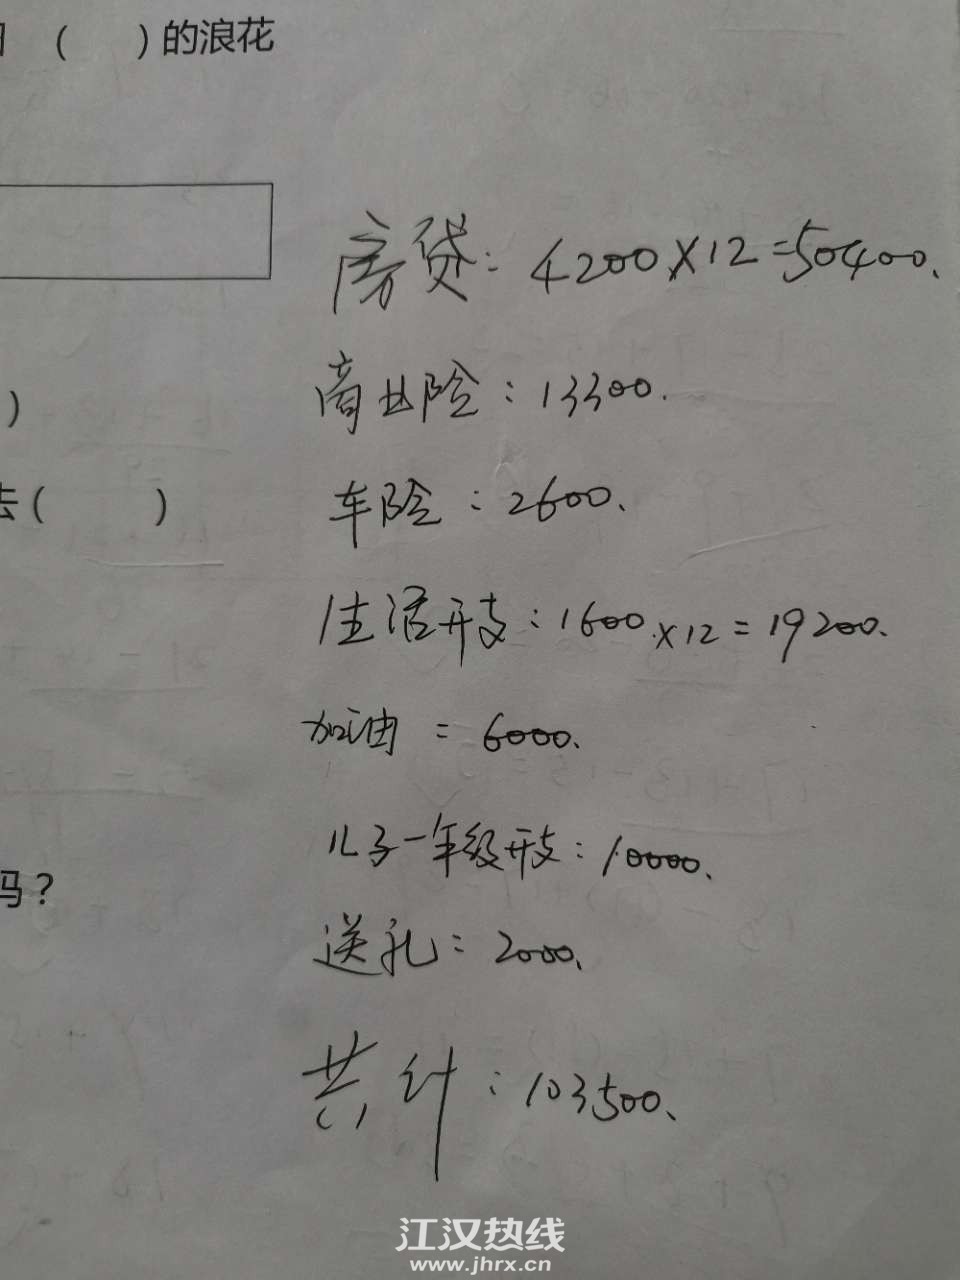 ( )的浪花
房贷：4200×12=50400.
商业险：13300.
)
车险：2600.
去( )
生活开支：1600.×12=19200.
加油=6000.
儿子一年级开支：10000.
吗？
送礼：2000.
共计：103500.
江汉热线
www.jhrx.cn